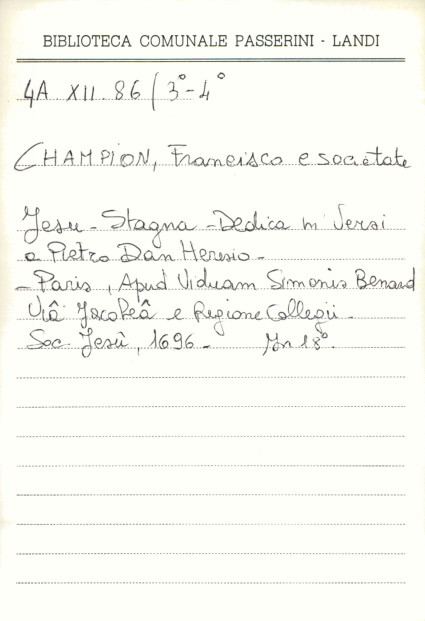 BIBLIOTECA COMUNALE PASSERINI - LANDI
4A XII 86 ( 3° - 4°
CHAMPION, Francisco e societate
Jesu - Stagna - Dedica in versi
a Pietro Dan Heresio -
- Paris, Apud Viduam Simonis Benard
Viâ Jacobeâ e Regione Collegii -
Soc. Jesù, 1696 - In 18°.